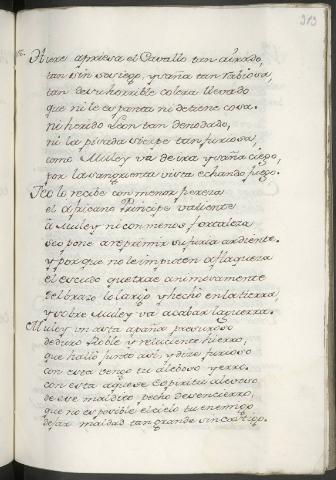 313
Hiere apriesa el Cavallo tan ayrado,
tan sin sosiego, y saña tan rabiosa,
tan de su horrible colera llevado
que ni le espanta ni detiene cosa.
ni herido Leon tan denodado,
ni la pisada sierpe tan furiosa,
como Muley va de ira y saña ciego,
por la sangrienta vista echando fuego.
No lo recibe con menor pereza
el Africano Principe valiente
a Muley ni con menos fortaleza
se opone a reprimir su furia ardiente.
y porque no le imputen a flaqueza
el escudo que trae animosamente
del brazo lo larjo y hecho en la tierra,
y sobre Muley va acabar la guerra.
Muley un asta apaña presuroso
de duro Roble y reluciente hierro,
que halló junto asi, y dijo furioso
con esta vengo tu alevoso yerro.
con esta aquese espiritu alevoso
de ese maldito pecho desencierro,
que no es posible el cielo tu enemigo
dejar maldad tan grande sin castigo.